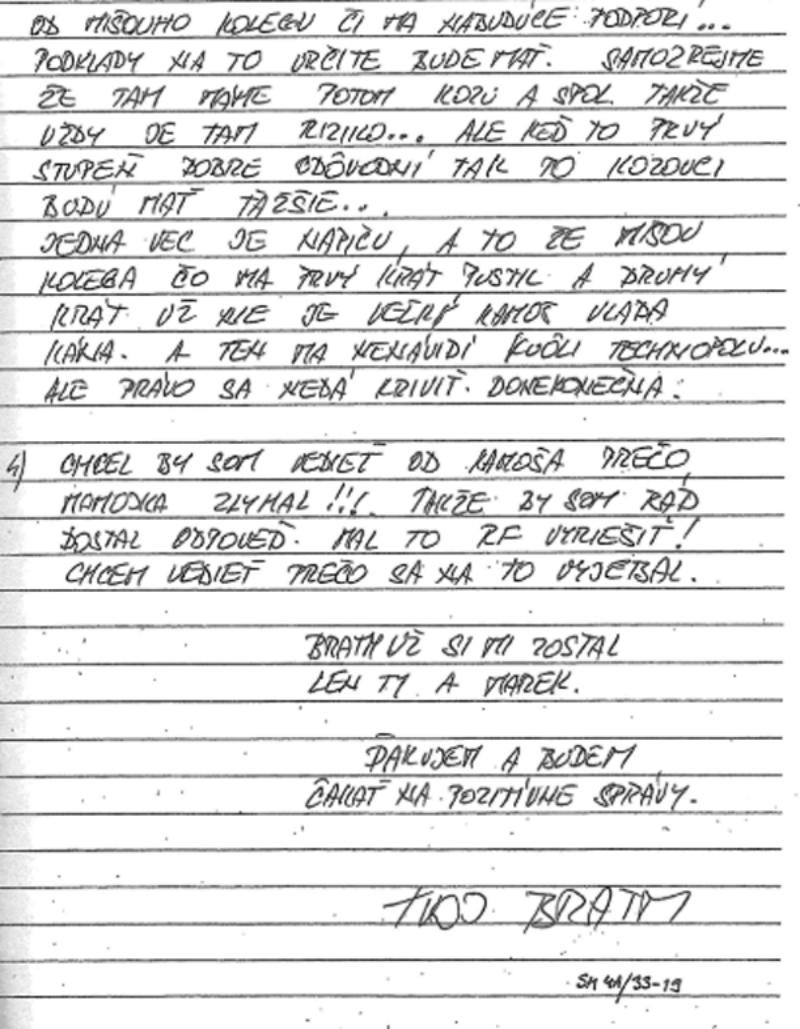 OD MIŠOVHO KOLEGU ČI MA NABUDÚCE PODPORÍ...
PODKLADY NA TO URČITE BUDE MAŤ. SAMOZREJME
ŽE TAM MÁME POTOM KOZU A SPOL. TAKŽE
VŽDY JE TAM RIZIKO... ALE KEĎ TO PRVÝ
STUPEŇ DOBRE ODÔVODNÍ TAK TO KOZOVCI
BUDÚ MAŤ ŤAŽŠIE...
JEDNA VEC JE NAPIČU, A TO ŽE MIŠOV
KOLEGA ČO MA PRVÝ KRÁT PUSTIL A DRUHÝ
KRÁT UŽ NIE JE VEĽKÝ KAMOŠ VLADA
KÁNA. A TEN MA NENÁVIDÍ KVÔLI TECHNOPOLU...
ALE PRÁVO SA NEDÁ KRIVIŤ DONEKONEČNA.
4) CHCEL BY SOM VEDIEŤ OD KAMOŠA PREČO
MAMOJKA ZLYHAL!!! TAKŽE BY SOM RÁD
DOSTAL ODPOVEĎ. MAL TO RF VYRIEŠIŤ!
CHCEM VEDIEŤ PREČO SA NA TO VYJEBAL.
BRATM UŽ SI MI ZOSTAL
LEN TY A MAREK.
ĎAKUJEM A BUDEM
ČAKAŤ NA POZITÍVNE SPRÁVY.
TVOJ BRATM